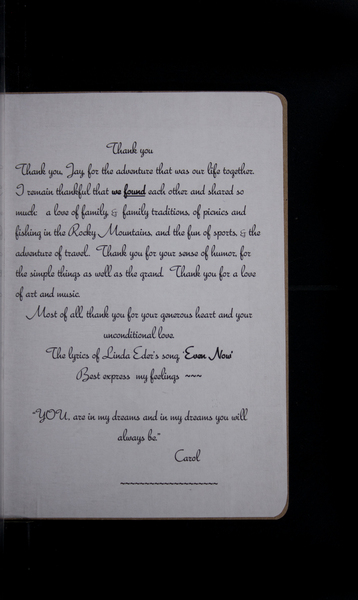 Thank you
Thank you, Jay, for the adventure that was our life together.
I remain thankful that we found each other and shared so
much: a love of family, & family traditions, of picnics and
fishing in the Rocky Mountains, and the fun of sports, & the
adventure of travel. Thank you for your sense of humor, for
the simple things as well as the grand. Thank you for a love
of art and music.
Most of all, thank you for your generous heart and your
unconditional love.
The lyrics of Linda Eder's song 'Even Now'
Best express my feelings ~~~
"YOU, are in my dreams and in my dreams you will
always be."
Carol
~~~~~~~~~~~~~~~~~~~~